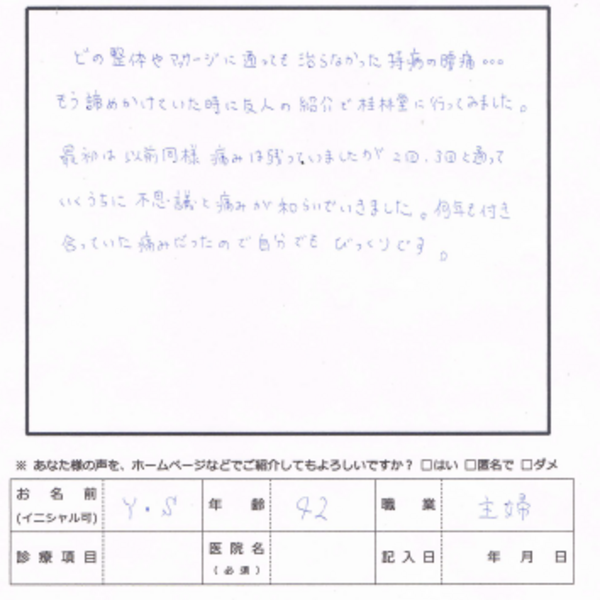 どの整体やマッサージに通っても治らなかった持病の腰痛…
もう諦めかけていた時に友人の紹介で桂林堂に行ってみました。
最初は以前同様痛みは残っていましたが2回、3回と通って
いくうちに不思議と痛みが和らいでいきました。何年も付き
合っていた痛みだったので自分でもびっくりです。
※ あなた様の声を、ホームページなどでご紹介してもよろしいですか? □はい □匿名で □ダメ
お名前 (イニシャル可) Y・S 年齢 42 職業 主婦
診療項目 医院名 (必須) 記入日 年 月 日